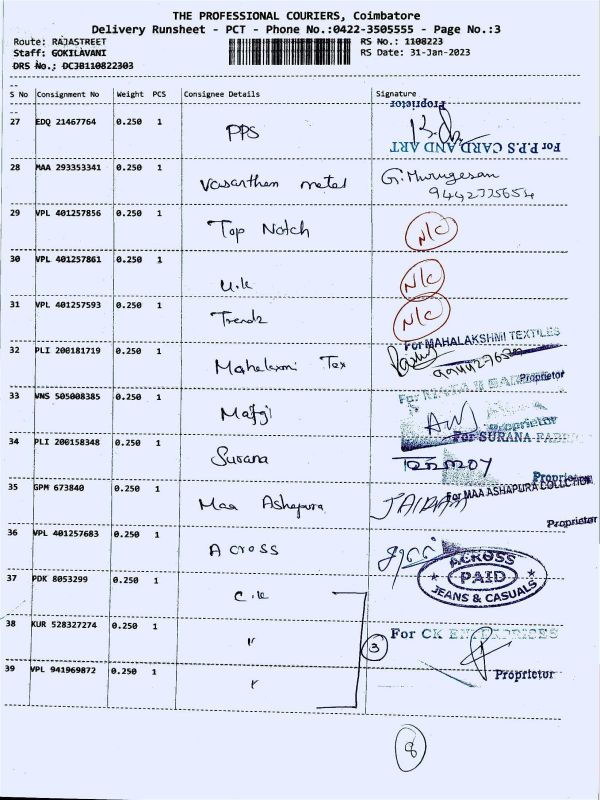 THE PROFESSIONAL COURIERS, Coimbatore
Delivery Runsheet - PCT - Phone No.:0422-3505555 - Page No.:3
Route: RAJASTREET RS No.: 1108223
Staff: GOKILAVANI RS Date: 31-Jan-2023
DRS No.; DCJB110822303
S No Consignment No Weight PCS Consignee Details Signature
Proprietor
27 EDQ 21467764 0.250 1 PPS
For P.P.S CARD AND ART
28 MAA 293353341 0.250 1 Vasanthan metal G. Murugesan
9442725654
29 VPL 401257856 0.250 1 Top Notch N/C
30 VPL 401257861 0.250 1 U.k N/C
31 VPL 401257593 0.250 1 Trendz N/C
For MAHALAKSHMI TEXTILES
32 PLI 200181719 0.250 1 Mahalaxmi Tex
Proprietor
33 VNS 505008385 0.250 1
Proprietor
For SURANA FABRI
34 PLI 200158348 0.250 1 Surana
Proprietor
35 GPM 673840 0.250 1 Maa Ashapura JAIRAM
For MAA ASHAPURA COLLCTION
Proprietor
36 VPL 401257683 0.250 1 Across
ACROSS
PAID
JEANS & CASUALS
37 PDK 8053299 0.250 1 C.k
38 KUR 528327274 0.250 1 "
3 For CK ENTERPRICES
39 VPL 941969872 0.250 1 "
Proprietor
8